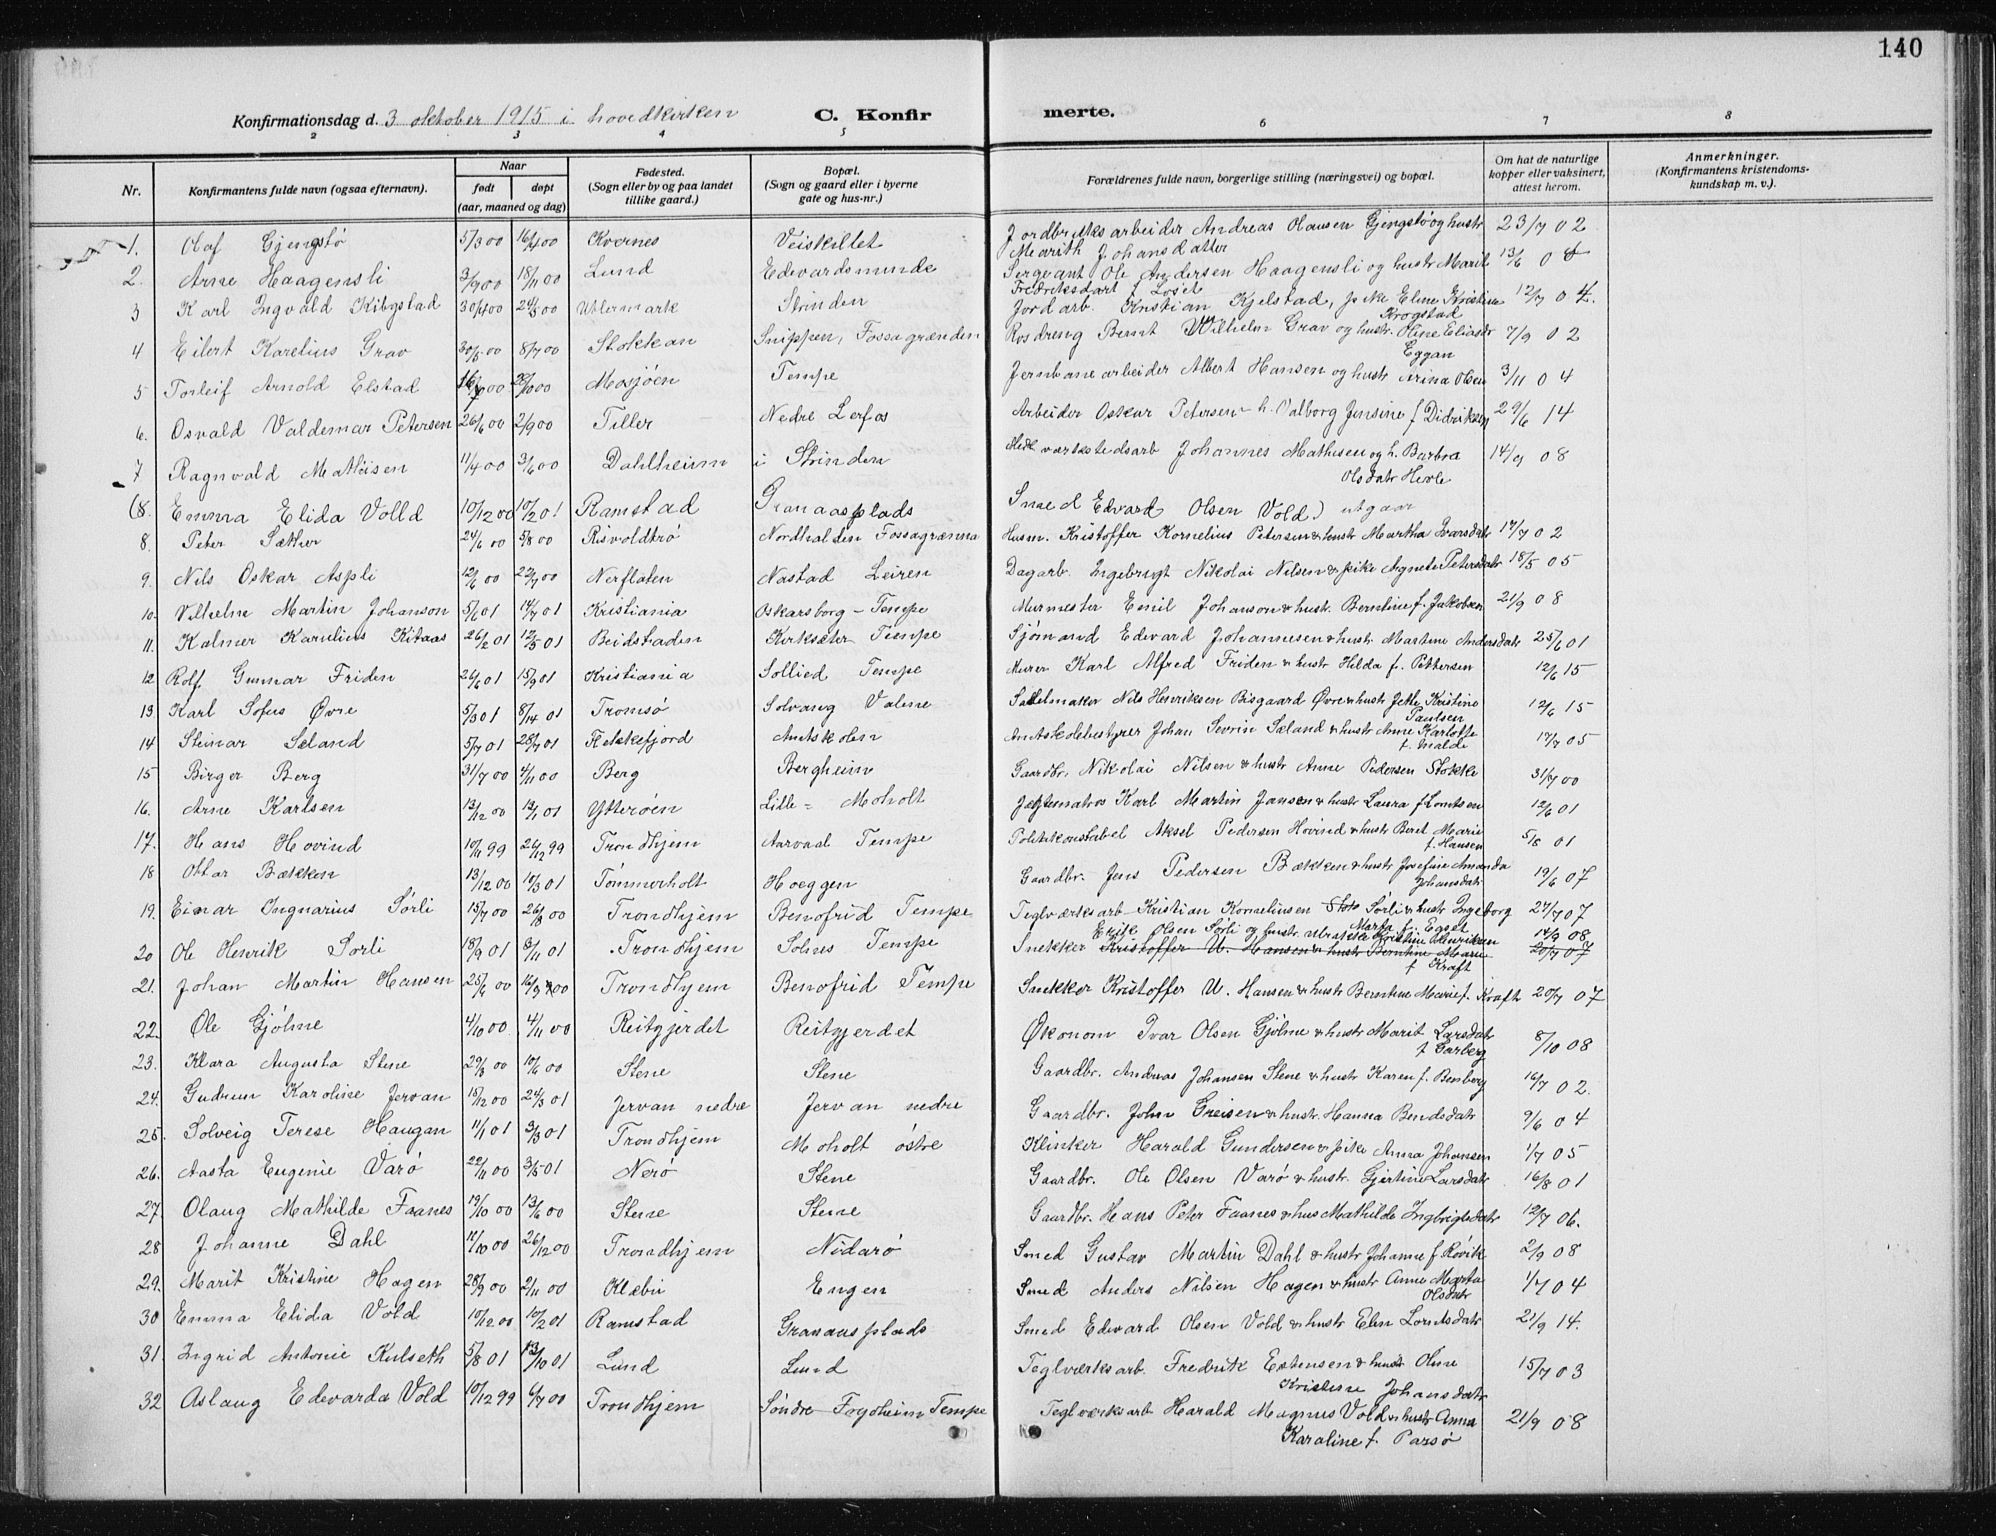 140
Konfirmationsdag d. 3 oktober 1915 i hovedkirken C. Konfirmerte.
2 3 4 5 6 7 8
Nr. Konfirmantens fulde navn (ogsaa efternavn). Naar født døpt (aar, maaned og dag) Fødested. (Sogn eller by og paa landet tillike gaard.) Bopæl. (Sogn og gaard eller i byerne gate og hus-nr.) Forældrenes fulde navn, borgerlige stilling (næringsvei) og bopæl. Om hat de naturlige kopper eller vaksinert, attest herom. Anmerkninger. (Konfirmantens kristendomskundskap m. v.).
1. Olaf Gjengstø 5/3 00 16/4 00 Kvernes Veiskillet Jordbruksarbeider Andreas Olausen Gjengstø og hustr 23/7 02
Marith Johansdatter
2. Arne Haagensli 3/9 00 18/11 00 Lund Edvardsminde Sergeant Ole Andersen Haagensli og hustr Marit 13/6 08
Fredriksdart f Loset
3 Karl Ingvald Kibgstad 30/4 00 24/5 00 Uttermark Strinden Jordarb. Kristian Kjelstad, pike Eline Kristine 12/7 04.
Krogstad
4 Eilert Karelius Grav 30/5 00 8/7 00 Stokkan Snippen, Fossegrænden Rosdreng Bernt Wilhelm Grav og hustr. Oline Eliasdr 7/9 02
Eggan
5 Torleif Arnold Elstad 16/7 00 Mosjøen Tempe Jernbanearbeider Albert Hansen og hustr Olsen 3/11 04
6. Osvald Valdemar Petersen 26/6 00 2/9 00 Tiller Nedre Lerfos Arbeider Oskar Petersen - h. Valborg Jensine f Didriksen 29/6 14
7 Ragnvald Mathisen 11/4 00 3/6 00 Dahlheim i Strinden værkstedsarb Johannes Mathisen og h. Barbra 14/9 08
Olsdatr Hevle
(8. Emma Elida Volld 10/12 00 10/2 01 Ramstad Granaasplads Smed Edvard Olsen Vold.) utgaar
8. Peter Sæther 24/6 00 5/8 00 Risvoldtrø Nordhalden Fossagrænna Husm. Kristoffer Kornelius Petersen & hustr Martha Ivarsdatr 17/7 02
9. Nils Oskar Aspli 12/6 00 22/7 00 Nerflaten Nastad Leiren Dagarb. Ingebrigt Nikolai Nilsen & pike Agnete Petersdatr 18/5 05
10. Vilhelm Martin Johanson 5/6 01 14/7 01 Kristiania Oskarsborg - Tempe Murmester Emil Johanson & hustr. Berntine f. Jakobsen 21/9 08
11. Kalmer Karelius Kibaas 26/2 01 12/5 01 Beidstaden Kirksæter Tempe Sjømand Edvard Johannesen & hustr Martine Andersdatr 25/6 01
12 Rolf Gunnar Friden 26/6 01 15/9 01 Kristiania Sollied Tempe Murer Karl Alfred Friden & hustr Hilda f. Pettersen 12/6 15
13. Karl Sofus Øvre 5/3 01 8/14 01 Tromsø Solvang Valene Salelmaker Nils Henriksen Bisgaard Øvre & hustr Jette Kristine 12/6 15
Paulsen
14 Steinar Sæland 5/7 01 28/7 01 Flekkefjord Amtskolen Amtskolebestyrer Johan Severin Sæland & hustr Anne Karlotte 17/7 05
f. Malde
15 Birger Berg 31/7 00 4/11 00 Berg Bergheim Gaardbr. Nikolai Nilsen & hustr Anne Pedersen Stokke 31/7 00
16. Arne Karlsen 13/12 00 13/1 01 Ytterøen Lille - Moholt Jægtematros Karl Martin Jansen & hustr Laura f Lorntsen 12/6 01
17. Hans Hovind 10/11 99 26/12 99 Trondhjem Aarvaal Tempe Politikonstabel Aksel Pedersen Hovind & hustr Beret Marie 5/8 01
f. Hansen
18 Ottar Bækken 13/12 00 10/3 01 Tømmerholt Hoeggen Gaardbr. Jens Pedersen Bækken & hustr Josefine Amanda 19/6 07
Johansdatr
19. Einar Ingvarius Sørli 15/7 00 26/8 00 Trondhjem Benofrid Tempe Teglværksarb Kristian Korneliusen Sørli & hustr Ingeborg 27/7 07
Marta f. Egset
20 Ole Henrik Sørli 18/9 01 3/11 01 Trondhjem Solnes Tempe Snekker Erik Olsen Sørli og hustr. Kristine Henriksen 14/9 08
Kristoffer U. Hansen & hustr Berntine Marie 20/7 07
f Kraft
21. Johan Martin Hansen 25/4 00 16/3 00 Trondhjem Benofrid Tempe Snekker Kristoffer U. Hansen & hustr Berntine Marie f. Kraft 20/7 07
22. Ole Gjølme 4/10 00 4/11 00 Reitgjerdet Reitgjerdet Økonom Ivar Olsen Gjølme & hustr Marit Larsdatr 8/10 08
f Garberg
23. Klara Augusta Stene 29/3 00 10/6 00 Stene Stene Gaardbr. Andreas Johansen Stene & hustr Karen f. Bensberg 16/7 02.
24. Gudrun Karoline Jervan 18/12 00 24/3 01 Jervan nedre Jervan nedre Gaardbr. John Greisen & hustr. Hanna Bendsdatr 9/6 04
25. Solveig Terese Haugan 11/1 01 3/3 01 Trondhjem Moholt østre Klinker Harald Gundersen & pike Anna Johansen 1/7 05
26. Aasta Eugenie Varø 22/11 00 3/5 01 Nerø Stene Gaardbr. Ole Olsen Varø & hustr. Gjertine Larsdatr 16/8 01
27. Olaug Mathilde Faanes 19/10 00 13/6 00 Stene Stene Gaardbr. Hans Peter Faanes & hus Mathilde Ingbrigtsdatr 12/7 06.
28 Johanne Dahl 11/10 00 26/12 00 Trondhjem Nidarø Smed Gustav Martin Dahl & hustr Johanne f. Røvik 2/9 08
29. Marit Kristine Hagen 28/9 00 2/11 00 Klæbu Engen Smed Anders Nilsen Hagen & hustr Anne Marta 1/7 04
Olsdatr
30 Emma Elida Vold 10/12 00 10/2 01 Ramstad Granaasplads Smed Edvard Olsen Vold & hustr Elen Lorntsdatr 21/9 14.
31. Ingrid Antonie Kulseth 5/8 01 13/10 01 Lund Lund Teglværksarb. Fredrik Estensen & hustr Oline 15/7 03
Kristine Johansdatr
32 Aslaug Edvarda Vold 10/12 99 6/7 00 Trondhjem Søndre Frydheim Tempe Teglværksarb Harald Magnus Vold & hustr Anna 21/9 08
Karoline f. Parsø